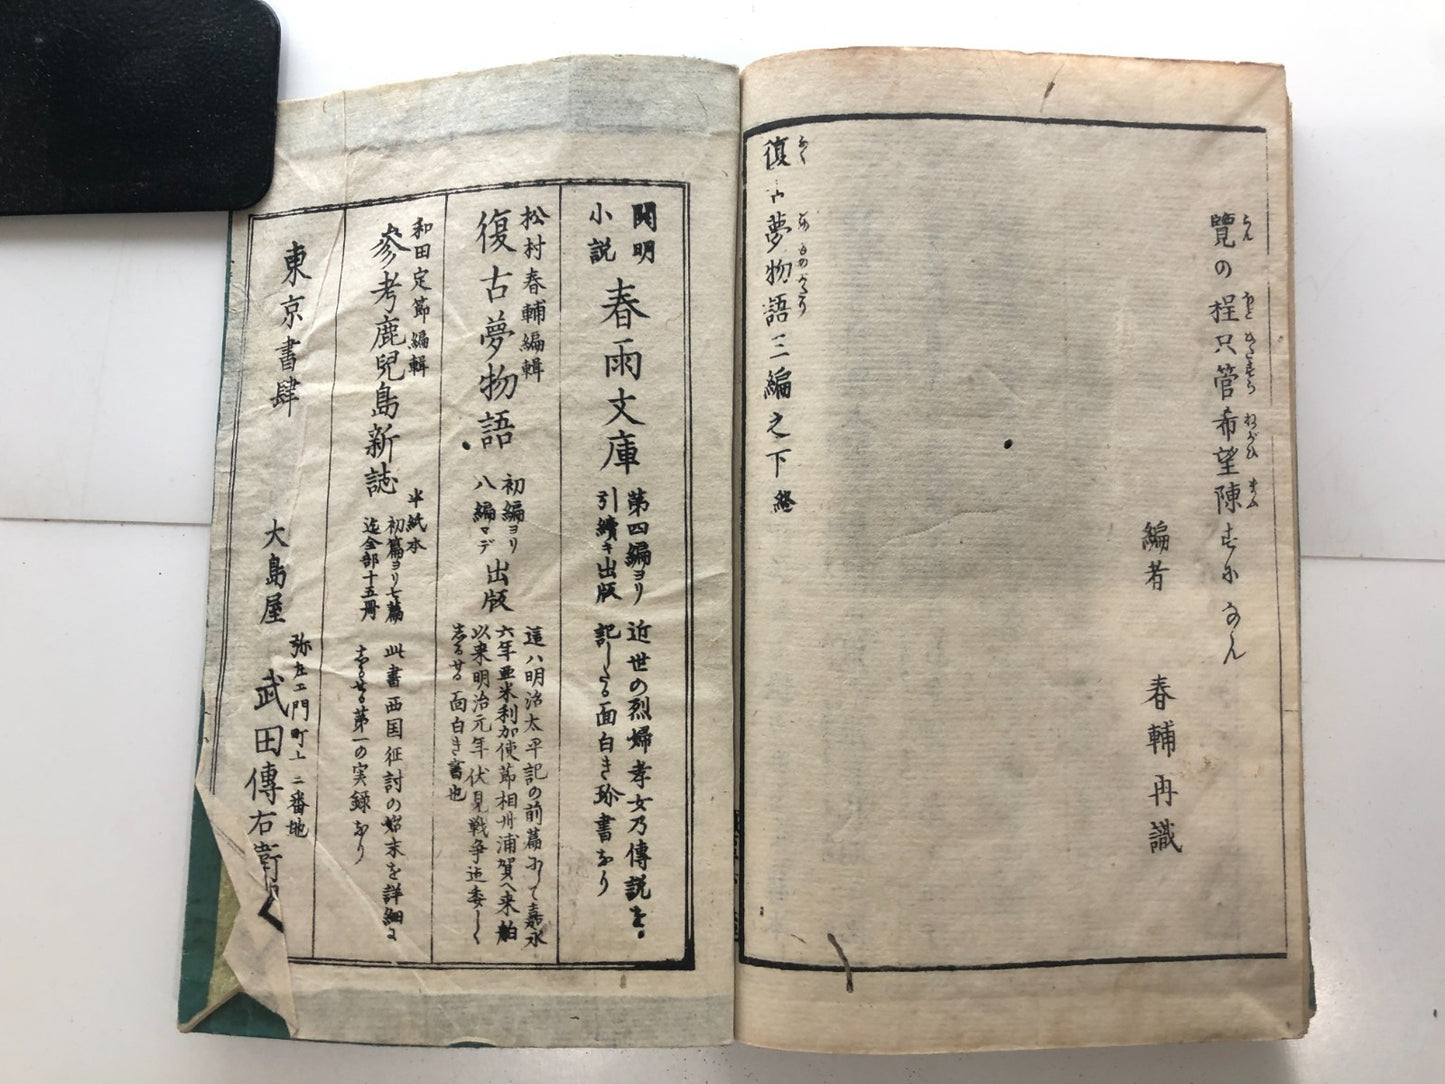 覽の程只管希望陳すになん
編者　春輔再識
復古夢物語三編之下終
開明小説　春雨文庫　第四編ヨリ引續キ出版　近世の烈婦孝女乃傳説を記したる面白き珍書なり
松村春輔編輯
復古夢物語　初編ヨリ八編マデ出版　這ハ明治太平記の前篇にして嘉永六年亜米利加使節相州浦賀へ来舶以来明治元年伏見戦争迄委しくしるせる面白き書也
和田定節編輯
参考鹿児島新誌　半紙本　初篇ヨリ七篇迄全部十五冊　此書西国征討の始末を詳細にしるせる第一の実録なり
東京書肆　大島屋　武田傳右衛
弥左エ門町十二番地